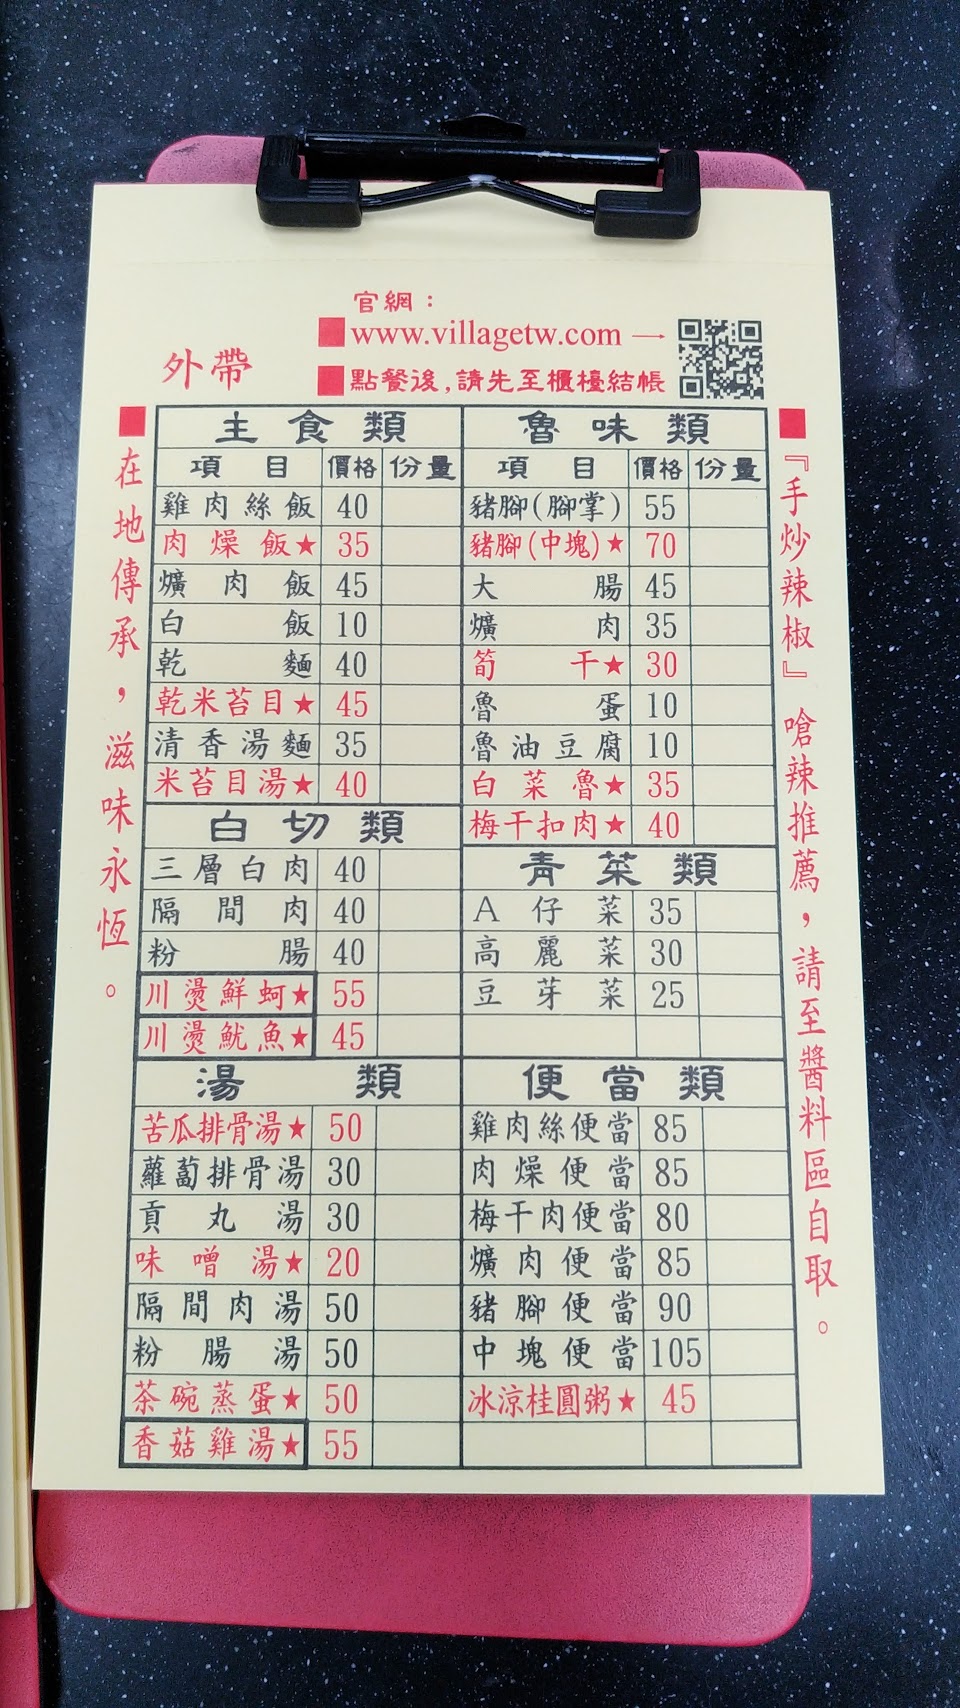 官網：
■www.villagetw.com →
外帶
■點餐後,請先至櫃檯結帳
■在地傳承，滋味永恆。
主食類
項目 價格 份量
雞肉絲飯 40
肉燥飯★ 35
爌肉飯 45
白飯 10
乾麵 40
乾米苔目★ 45
清香湯麵 35
米苔目湯★ 40
白切類
三層白肉 40
隔間肉 40
粉腸 40
川燙鮮蚵★ 55
川燙魷魚★ 45
湯類
苦瓜排骨湯★ 50
蘿蔔排骨湯 30
貢丸湯 30
味噌湯★ 20
隔間肉湯 50
粉腸湯 50
茶碗蒸蛋★ 50
香菇雞湯★ 55
魯味類
項目 價格 份量
豬腳(腳掌) 55
豬腳(中塊)★ 70
大腸 45
爌肉 35
筍干★ 30
魯蛋 10
魯油豆腐 10
白菜魯★ 35
梅干扣肉★ 40
青菜類
A仔菜 35
高麗菜 30
豆芽菜 25
便當類
雞肉絲便當 85
肉燥便當 85
梅干肉便當 80
爌肉便當 85
豬腳便當 90
中塊便當 105
冰涼桂圓粥★ 45
■『手炒辣椒』嗆辣推薦，請至醬料區自取。